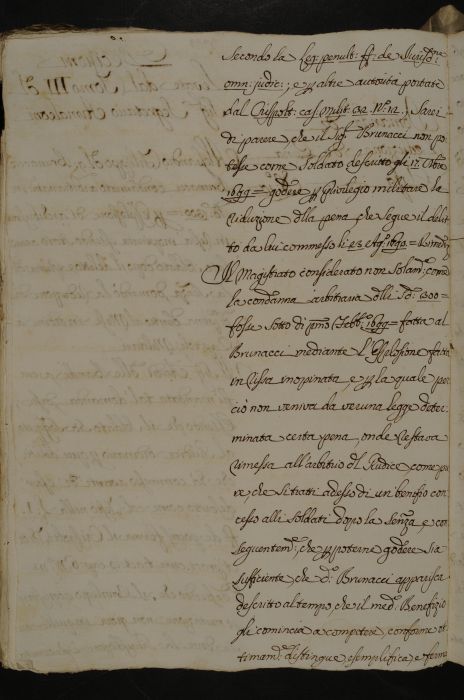 secondo la leg: penult: ff: de Jurisd:ne
omn: judic:; e p altre autorità portate
dal Crispolt: cas: milit: 32. N.o 12. Sarei
di parere, che il Sig.r Brunacci non po
tesse come Soldato descritto gli 17. Obre
1699 = godere p privilegio militare la
riduzione della pena, che segue il delit
to da lui commesso li 23. Ag.o 1690. =
Il Magistrato considerato non solam: come
la condanna arbitraria delli Sd: 1300 =
fosse sotto di p.mo Febb:o 1699 = fatta al
Brunacci mediante l'Esplosione fatta
in rissa inopinata, e p la quale per
ciò non veniva da veruna legge deter:
minata certa pena, onde restava
rimessa all'arbitrio del Giudice, come pu
re, che si tratti adesso di un benefizio con
cesso alli Soldati dopo la Senza, e con
seguentem:, che p poterne godere sia
sufficiente, che d.o Brunacci apparisca
descritto al tempo, che il med.o Benefizio
gli comincia a competere, conforme ot
timam:e distingue, esemplifica, e ferma